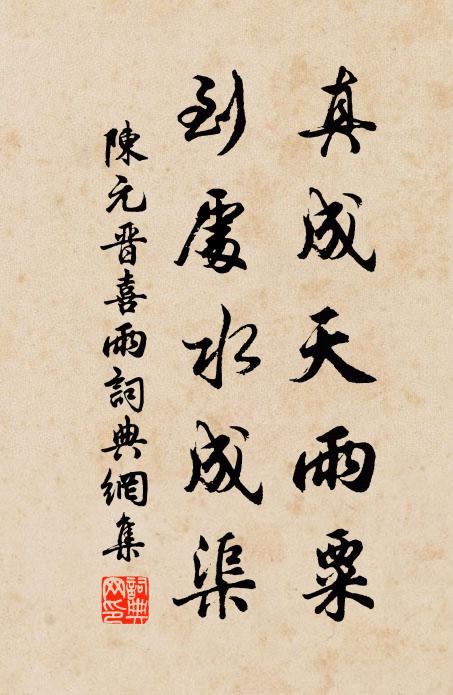 真成天雨粟
到處水成渠
陳元晋喜雨詞典網集
詞典網印